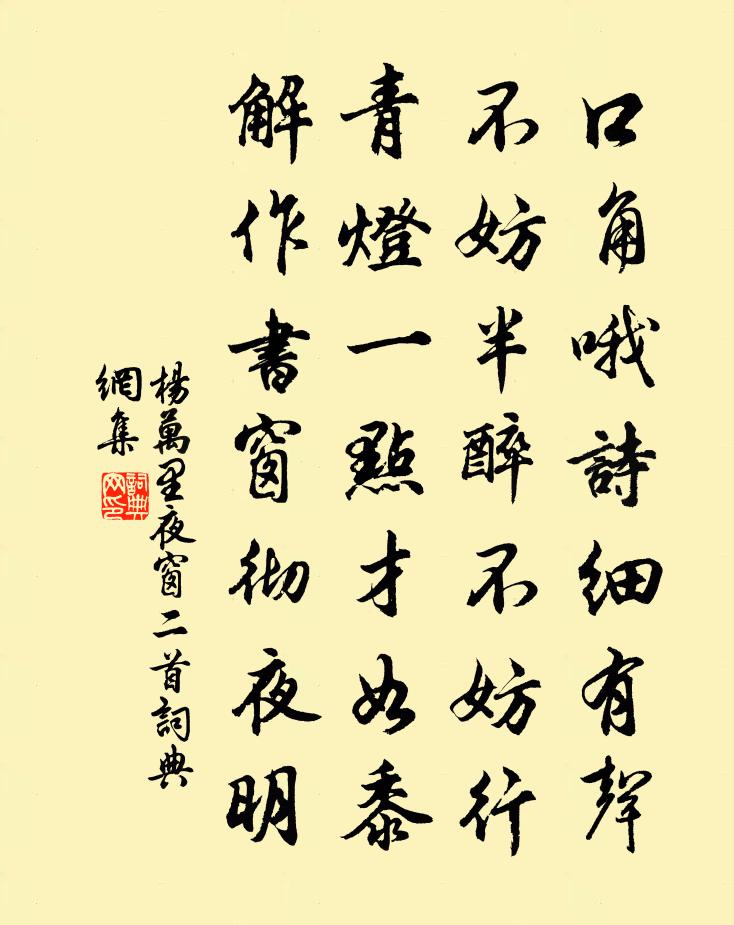 口角哦詩細有聲
不妨半醉不妨行
青燈一點才如黍
解作書窗彻夜明
楊萬里夜窗二首詞典
網集
詞典
网印